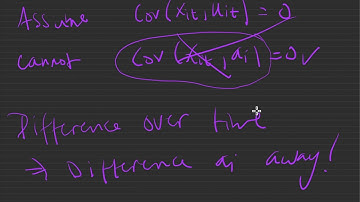 Assume Cov(xit, uit) = 0
cannot Cov(xit, ai) = 0 ✓
Difference over time
⇒ Difference ai away!